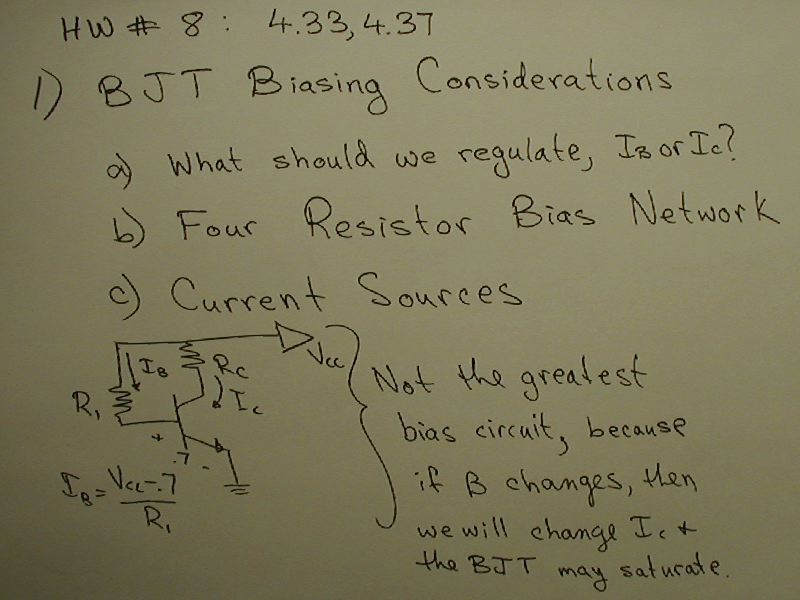 HW # 8 : 4.33, 4.37
1) BJT Biasing Considerations
a) What should we regulate, IB or Ic?
b) Four Resistor Bias Network
c) Current Sources
Vcc
IB
Rc
Ic
R1
+ .7 -
IB = Vcc - .7 / R1
Not the greatest
bias circuit, because
if B changes, then
we will change Ic +
the BJT may saturate.